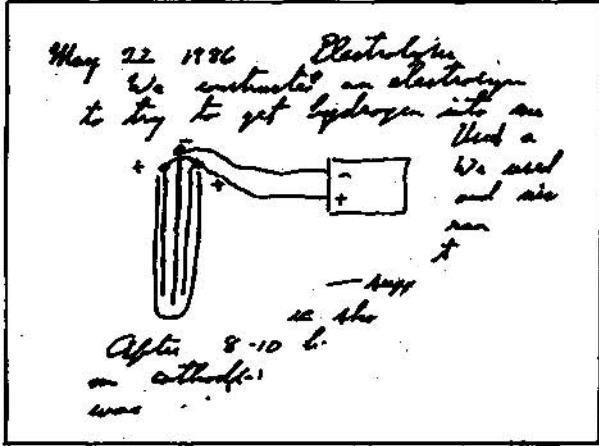 May 22 1986 Electrolysis
We constructed an electrolysis
to try to get hydrogen into
Used a
- We used
+ + - and
+ ran
supp
After 8-10 h.
on cathode(-)
was